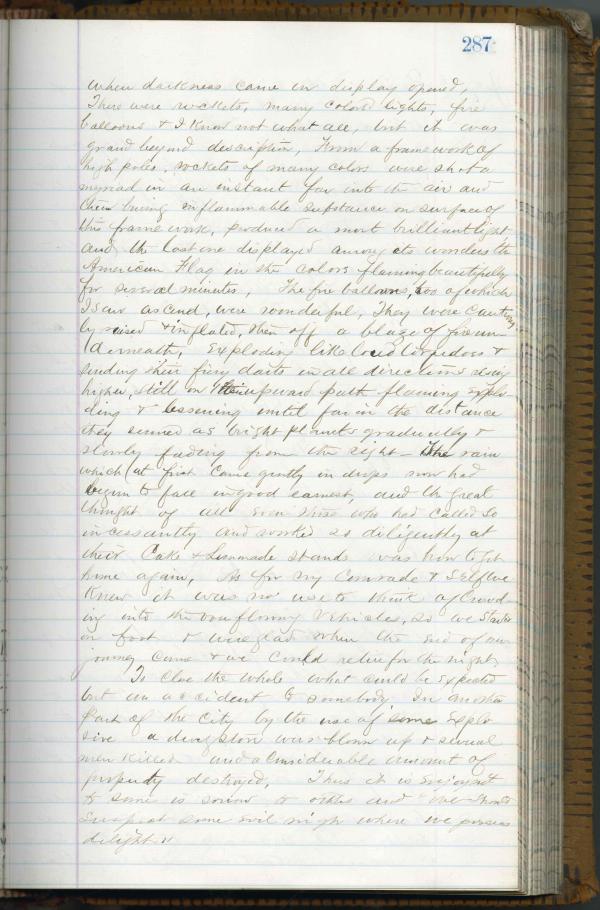 287
when darkness came in display opened,
There were rockets, many colored lights, fire
balloons & I know not what all, but it was
grand beyond description, From a frame work of
high poles, rockets of many colors were shot a
myriad in an instant far into the air and
then being inflammable substance on surface of
this frame work, produced a most brilliant light
and the last one displayed among its wonders the
American Flag in the colors flaming beautifully
for several minutes, The fire balloons, too of which
I saw ascend, were wonderful, They were Cautious
ly raised & inflated, then off a blaze of fire un
derneath, Exploding like loud torpedoes &
sending their firey darts in all directions doing
higher still on their upward path flaming explo
ding & lessening until far in the distance
they seemed as bright planets gradually &
slowly fading from the sight — The rain
which (at first came gently in drops now had
begun to fall in good earnest, and the great
thought of all even those who had called so
incessantly and worked so diligently at
their Cake & Lemonade stands was how to get
home again, As for my Comrade & Self we
knew it was no use to think of Crowd
ing into the overflowing Vehicles, so we started
on foot & were glad when the end of our
journey came & we could retire for the night,
To close the whole what could be expected
but an accident to somebody In another
Part of the City by the use of some explo
sive a drug store was blown up & several
men killed and a Considerable amount of
property destroyed, Thus it is enjoyment
to some is sorrow to others and our
suspect some evil nigh where we possess
delight."